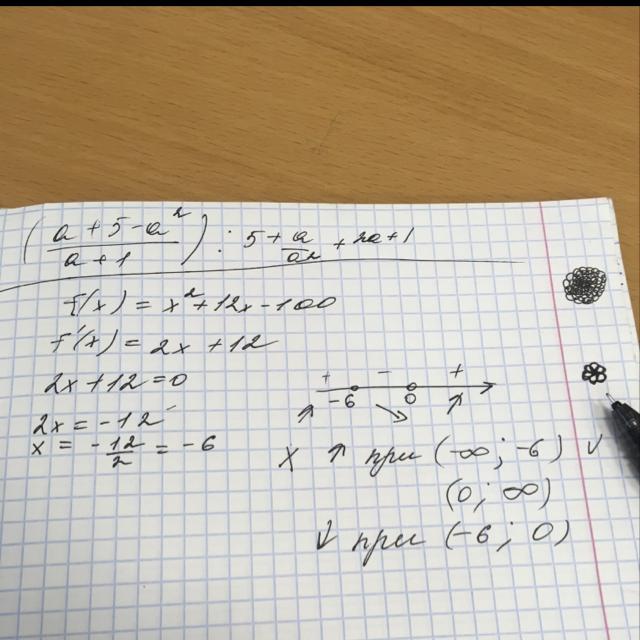 (a + 5 - a² / a + 1) : 5 + a/a² + 2a + 1
f(x) = x² + 12x - 100
f'(x) = 2x + 12
2x + 12 = 0
2x = -12
x = -12/2 = -6
+ - +
-6 0
↗ ↘ ↗
x ↑ при (-∞; -6) ∨
(0; ∞)
↓ при (-6; 0)